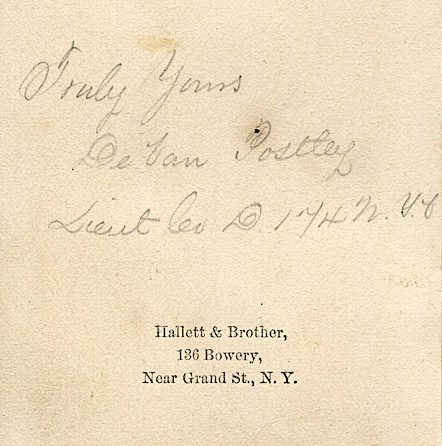 Truly Yours
De Van Postley
Lieut Co D 174 N. Y. V
Hallett & Brother,
136 Bowery,
Near Grand St., N. Y.